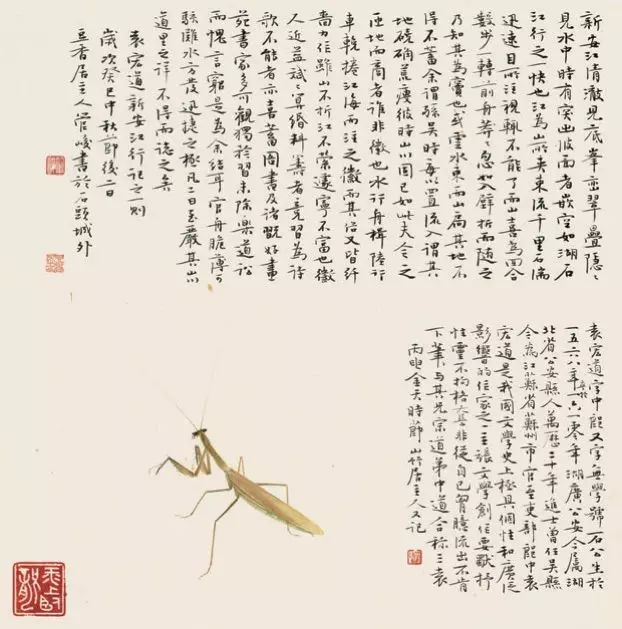 新安江清澈見底峯巒翠疊隱〻
見水中時有突出波面者嵌空如湖石
江行之一快也江為山所夾東流千里石湍
迅速目所注視輒不能了而山喜為回合
數步一轉前舟莾〻忽如入壁折而隨之
乃知其為竇也或靈水東而山扃其地不
得不蓄余謂孫吳時每以置流入謂其
地磽确荒瘦彼時山川固已如此夫今之
匝地而商者誰非徽也水行舟楫陸行
車輓捲江海而注之徽而其俗又皆纤
嗇力作雖山不折江不縈遽寧不富也徽
人近益斌〻算緡料籌者竟習為诗
歌不能者亦喜蓄圖書及諸翫好畫
苑書家多可觀獨於習未除樂道訟
而愧言窮是為余結耳官舟脆薄可
駭灘水方發迅捷之極凡二日至嚴其山川
道里之详不得而志之矣
袁宏道新安江行记之一则
歲次癸巳中秋節後二日
豆香居主人管峻書於石頭城外
袁宏道字中郎又字無學號石公生於
一五六八年卒於一六一零年湖廣公安今屬湖
北省公安縣人萬歷二十年進士曾任吳縣
令為江蘇省蘇州市官至吏部郎中袁
宏道是我國文學史上極具個性和廣泛
影響的作家之一主張文學創作要獨抒
性靈不拘格套非從自己胸臆流出不肯
下筆與其兄宗道弟中道合称三袁
丙申金天時節山竹居主人又记